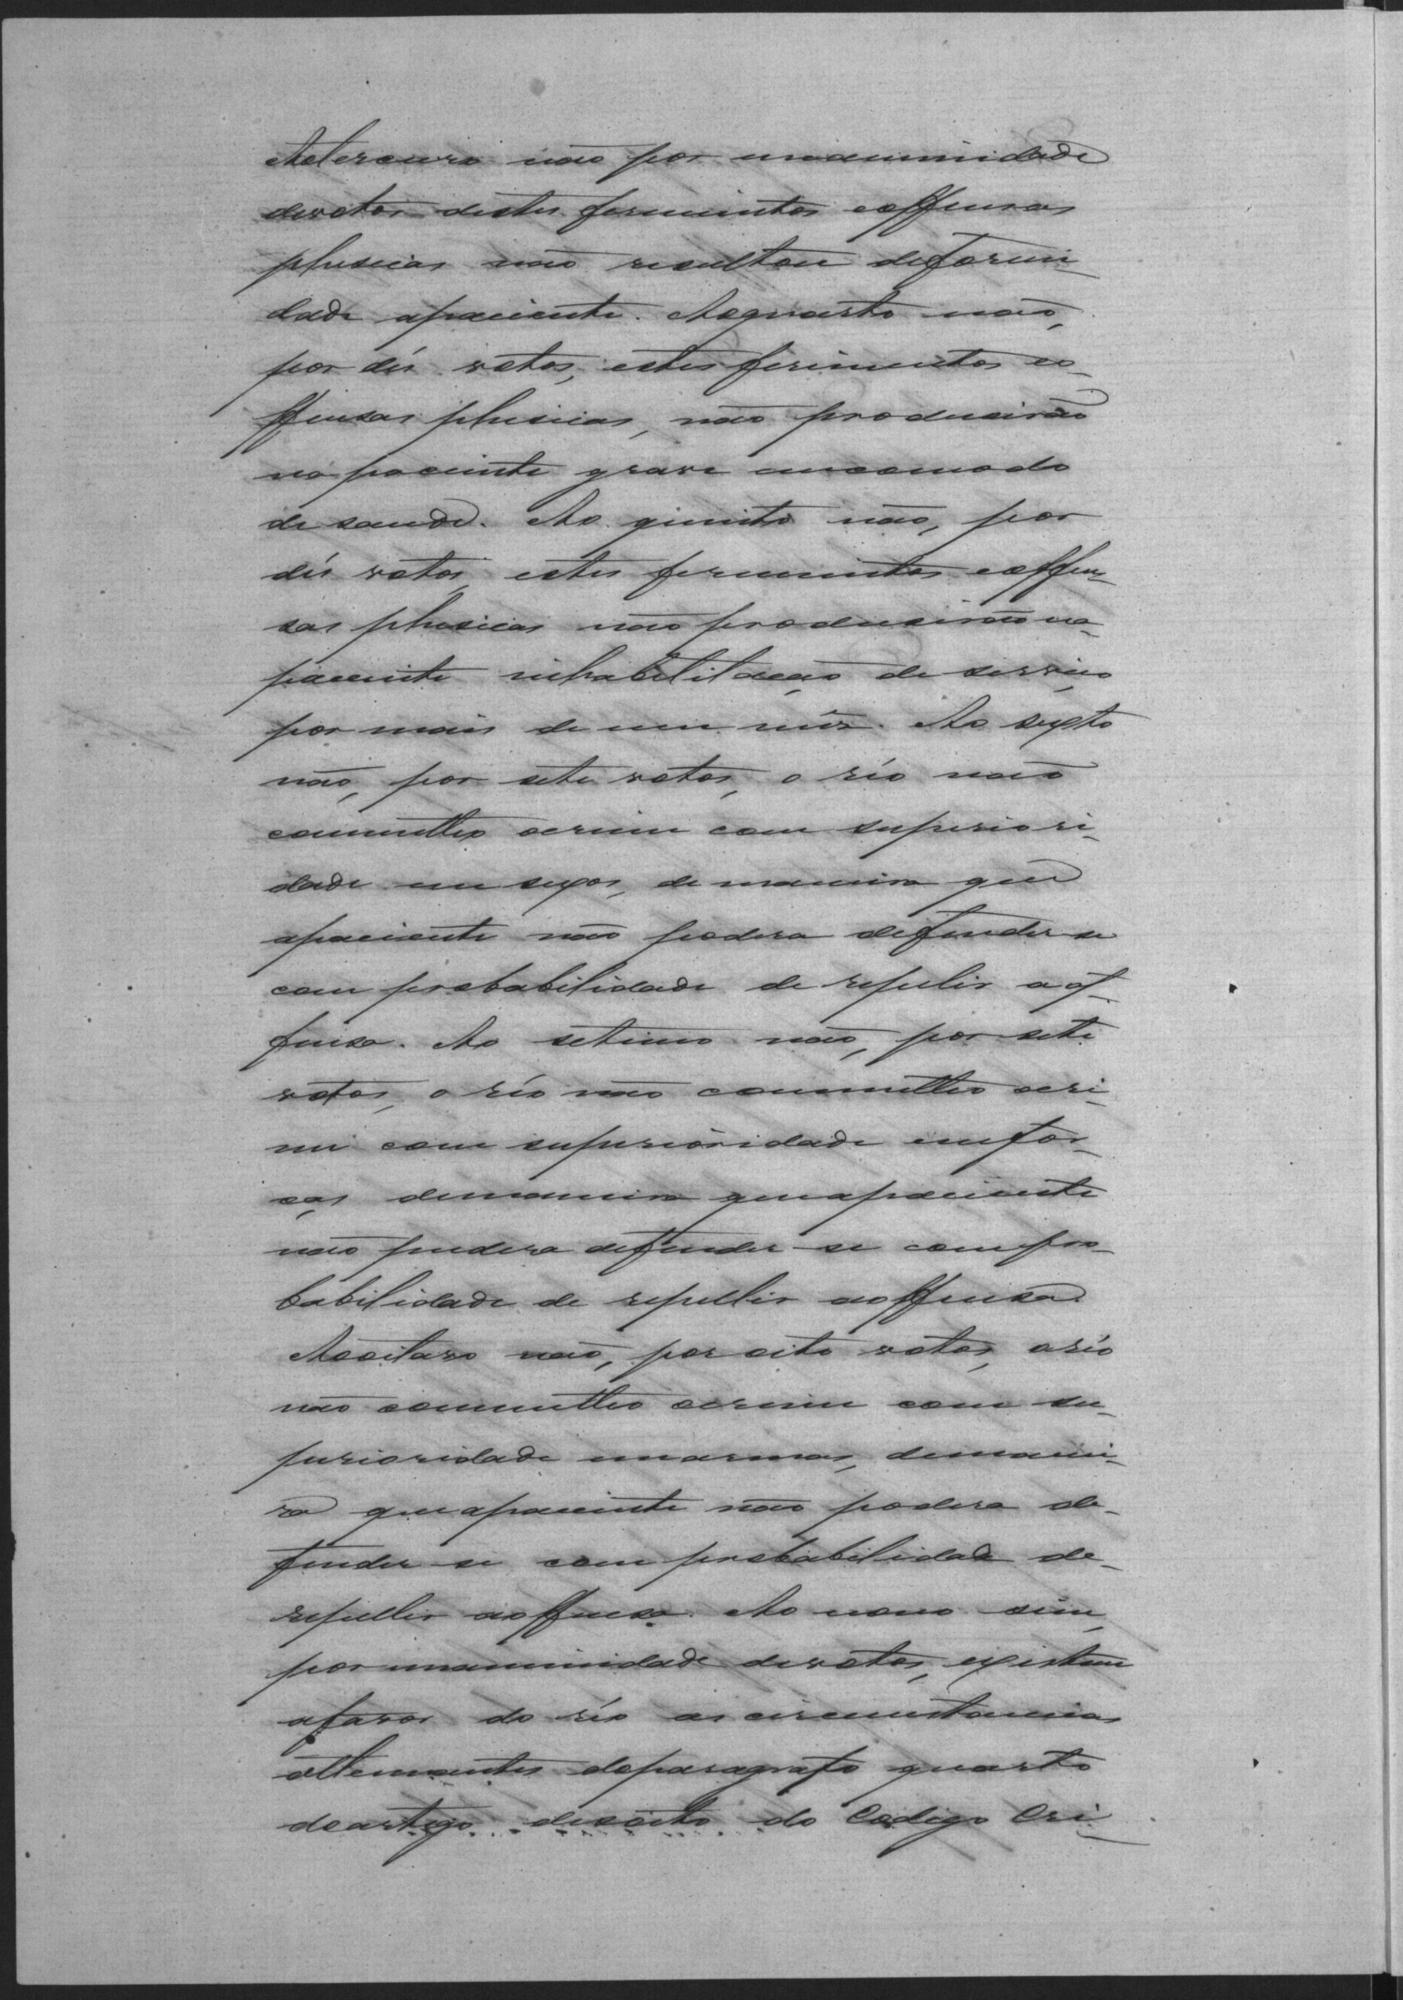 Aoterceiro não por unanimidade
devotos destes ferimentos eoffensas
phisicas não resultou deformi-
dade apaciente. Aoquarto não,
por dés votos, estes ferimentos eo-
ffensas phisicas, não produsirão
na paciente grave encomodo
de saude. Ao quinto não, por
dés votos, estes ferimentos eoffen-
sas phisicas não produsirão na
paciente inhabilitação de serviço
por mais de um mês. Ao sexto
não, por sete votos, o réo não
commetteo ocrime com superiori-
dade em sexos, de maneira que
apaciente não podera defender se
com probabilidade de repelir a of-
fensa. Ao setimo não, por sete
votos, o réo não commetteo ocri-
me com superioridade emfor-
ças demaneira queapaciente
não pudera defender se com pro-
babilidade de repellir aoffensa.
Aooitavo não, por oito votos, oréo
não commetteo ocrime com su-
perioridade emarmas, demanei-
ra queapaciente não podera de-
fender se com probabilidade de-
repellir aoffensa. Ao nono sim,
por unanimidade devotos, existem
afavor do réo as circunstancias
attenuantes doparagrafo quarto
doartigo desoito do Codigo Cri-